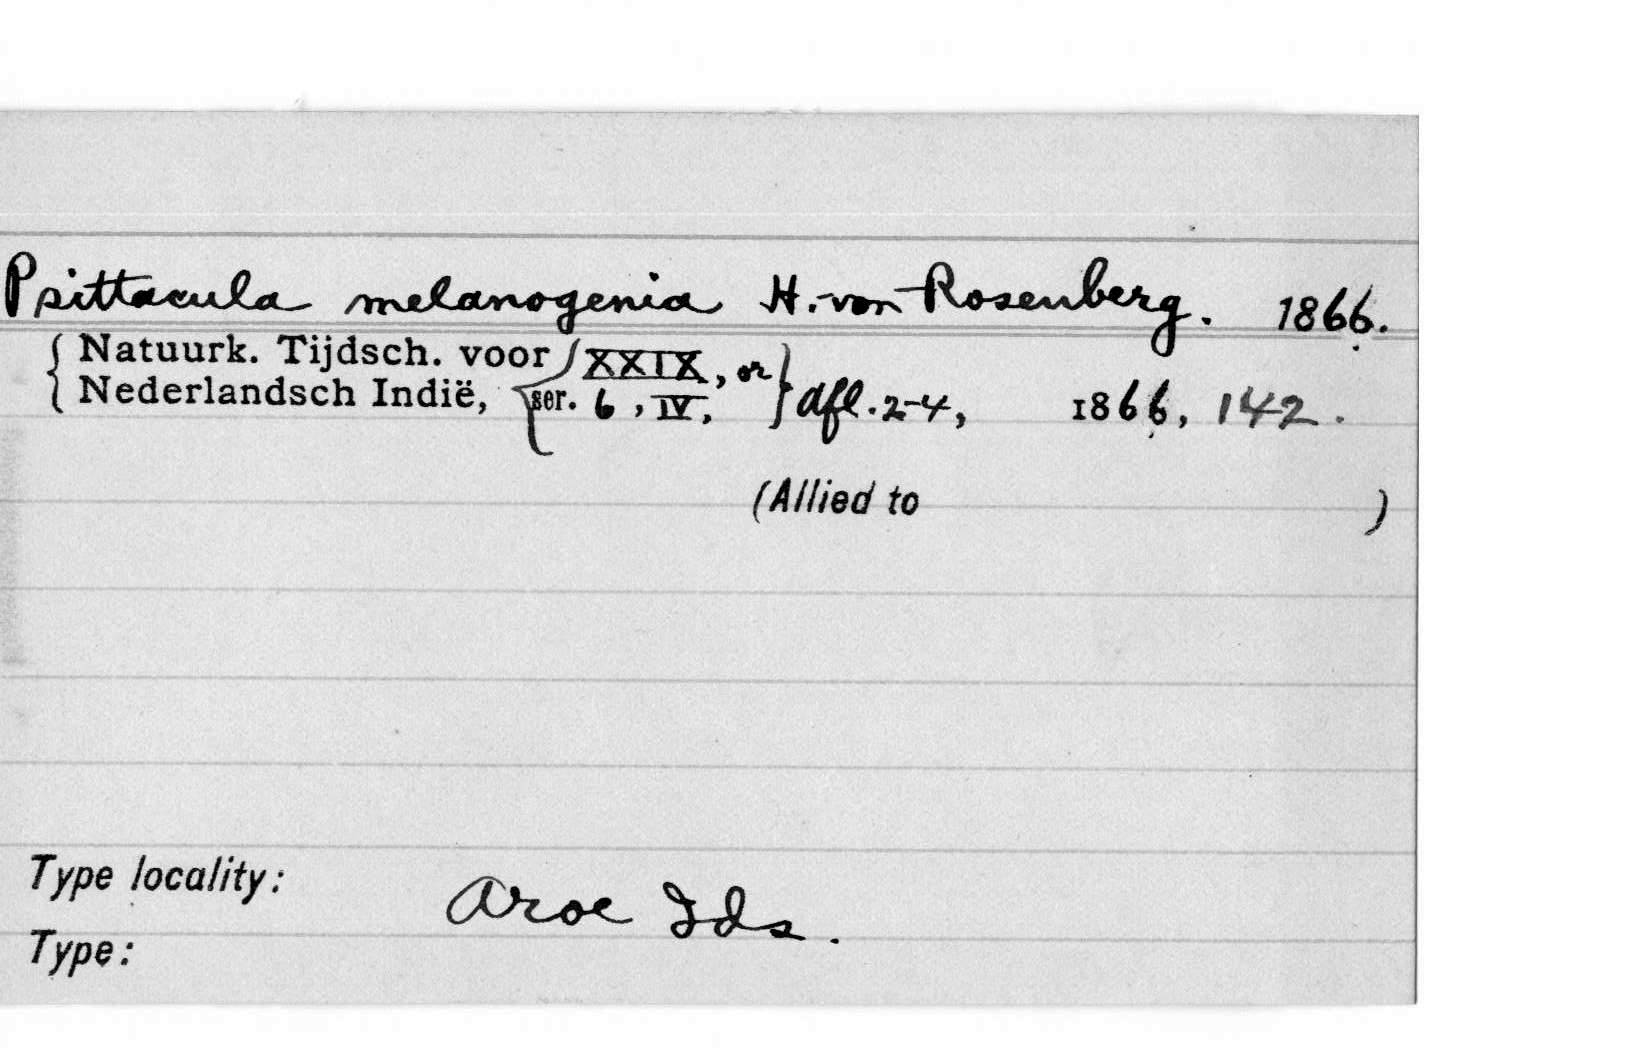 Psittacula melanogenia H. von Rosenberg. 1866.
Natuurk. Tijdsch. voor XXIX, or
Nederlandsch Indië, ser. 6, IV, afl. 2-4, 1866, 142.
(Allied to )
Type locality: Aroe Ids.
Type: